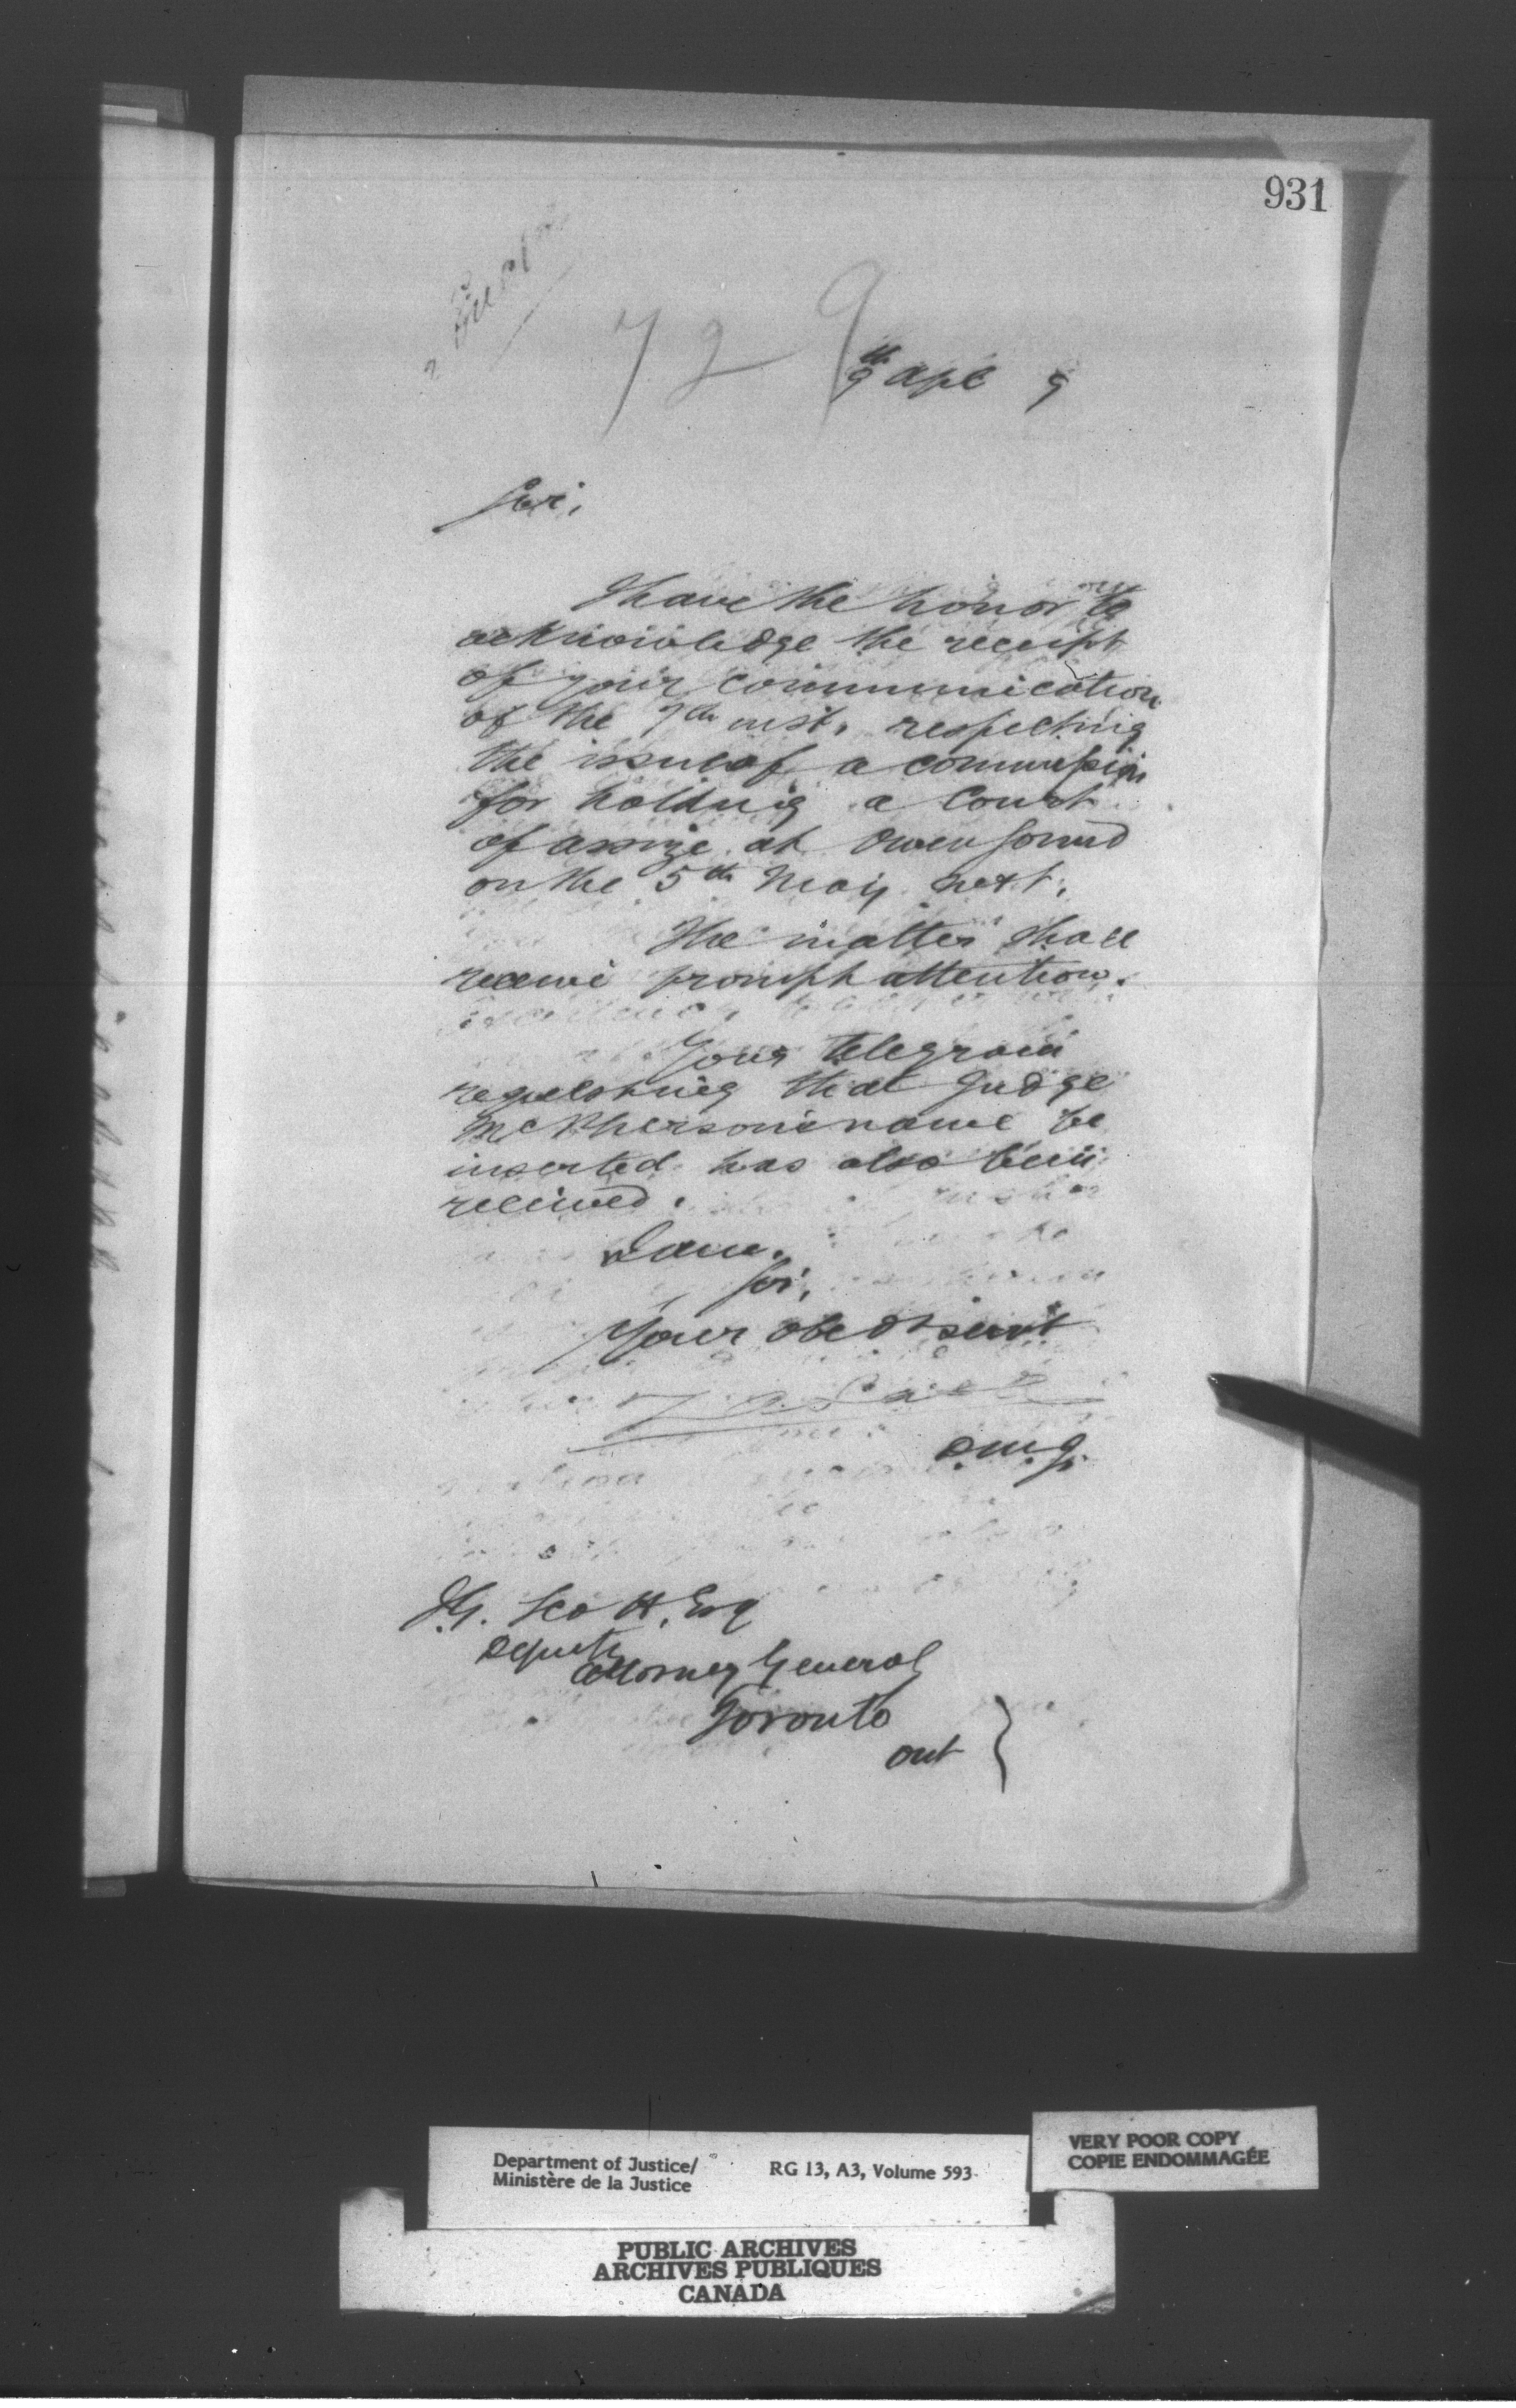 931
729
9th Apl 9
Sir,
I have the honor to
acknowledge the receipt
of your communication
of the 7th inst. respecting
the issue of a commission
for holding a Court
of assize at Owen Sound
on the 5th May next.
The matter shall
receive prompt attention.
Your telegram
requesting that Judge
McPherson's name be
inserted has also been
received.
I am.
Sir,
Your obedt servt
D.M.J.
J.G. Scott, Esq
Deputy
Attorney General
Toronto
Ont
Department of Justice/
Ministère de la Justice
RG 13, A3, Volume 593
VERY POOR COPY
COPIE ENDOMMAGÉE
PUBLIC ARCHIVES
ARCHIVES PUBLIQUES
CANADA